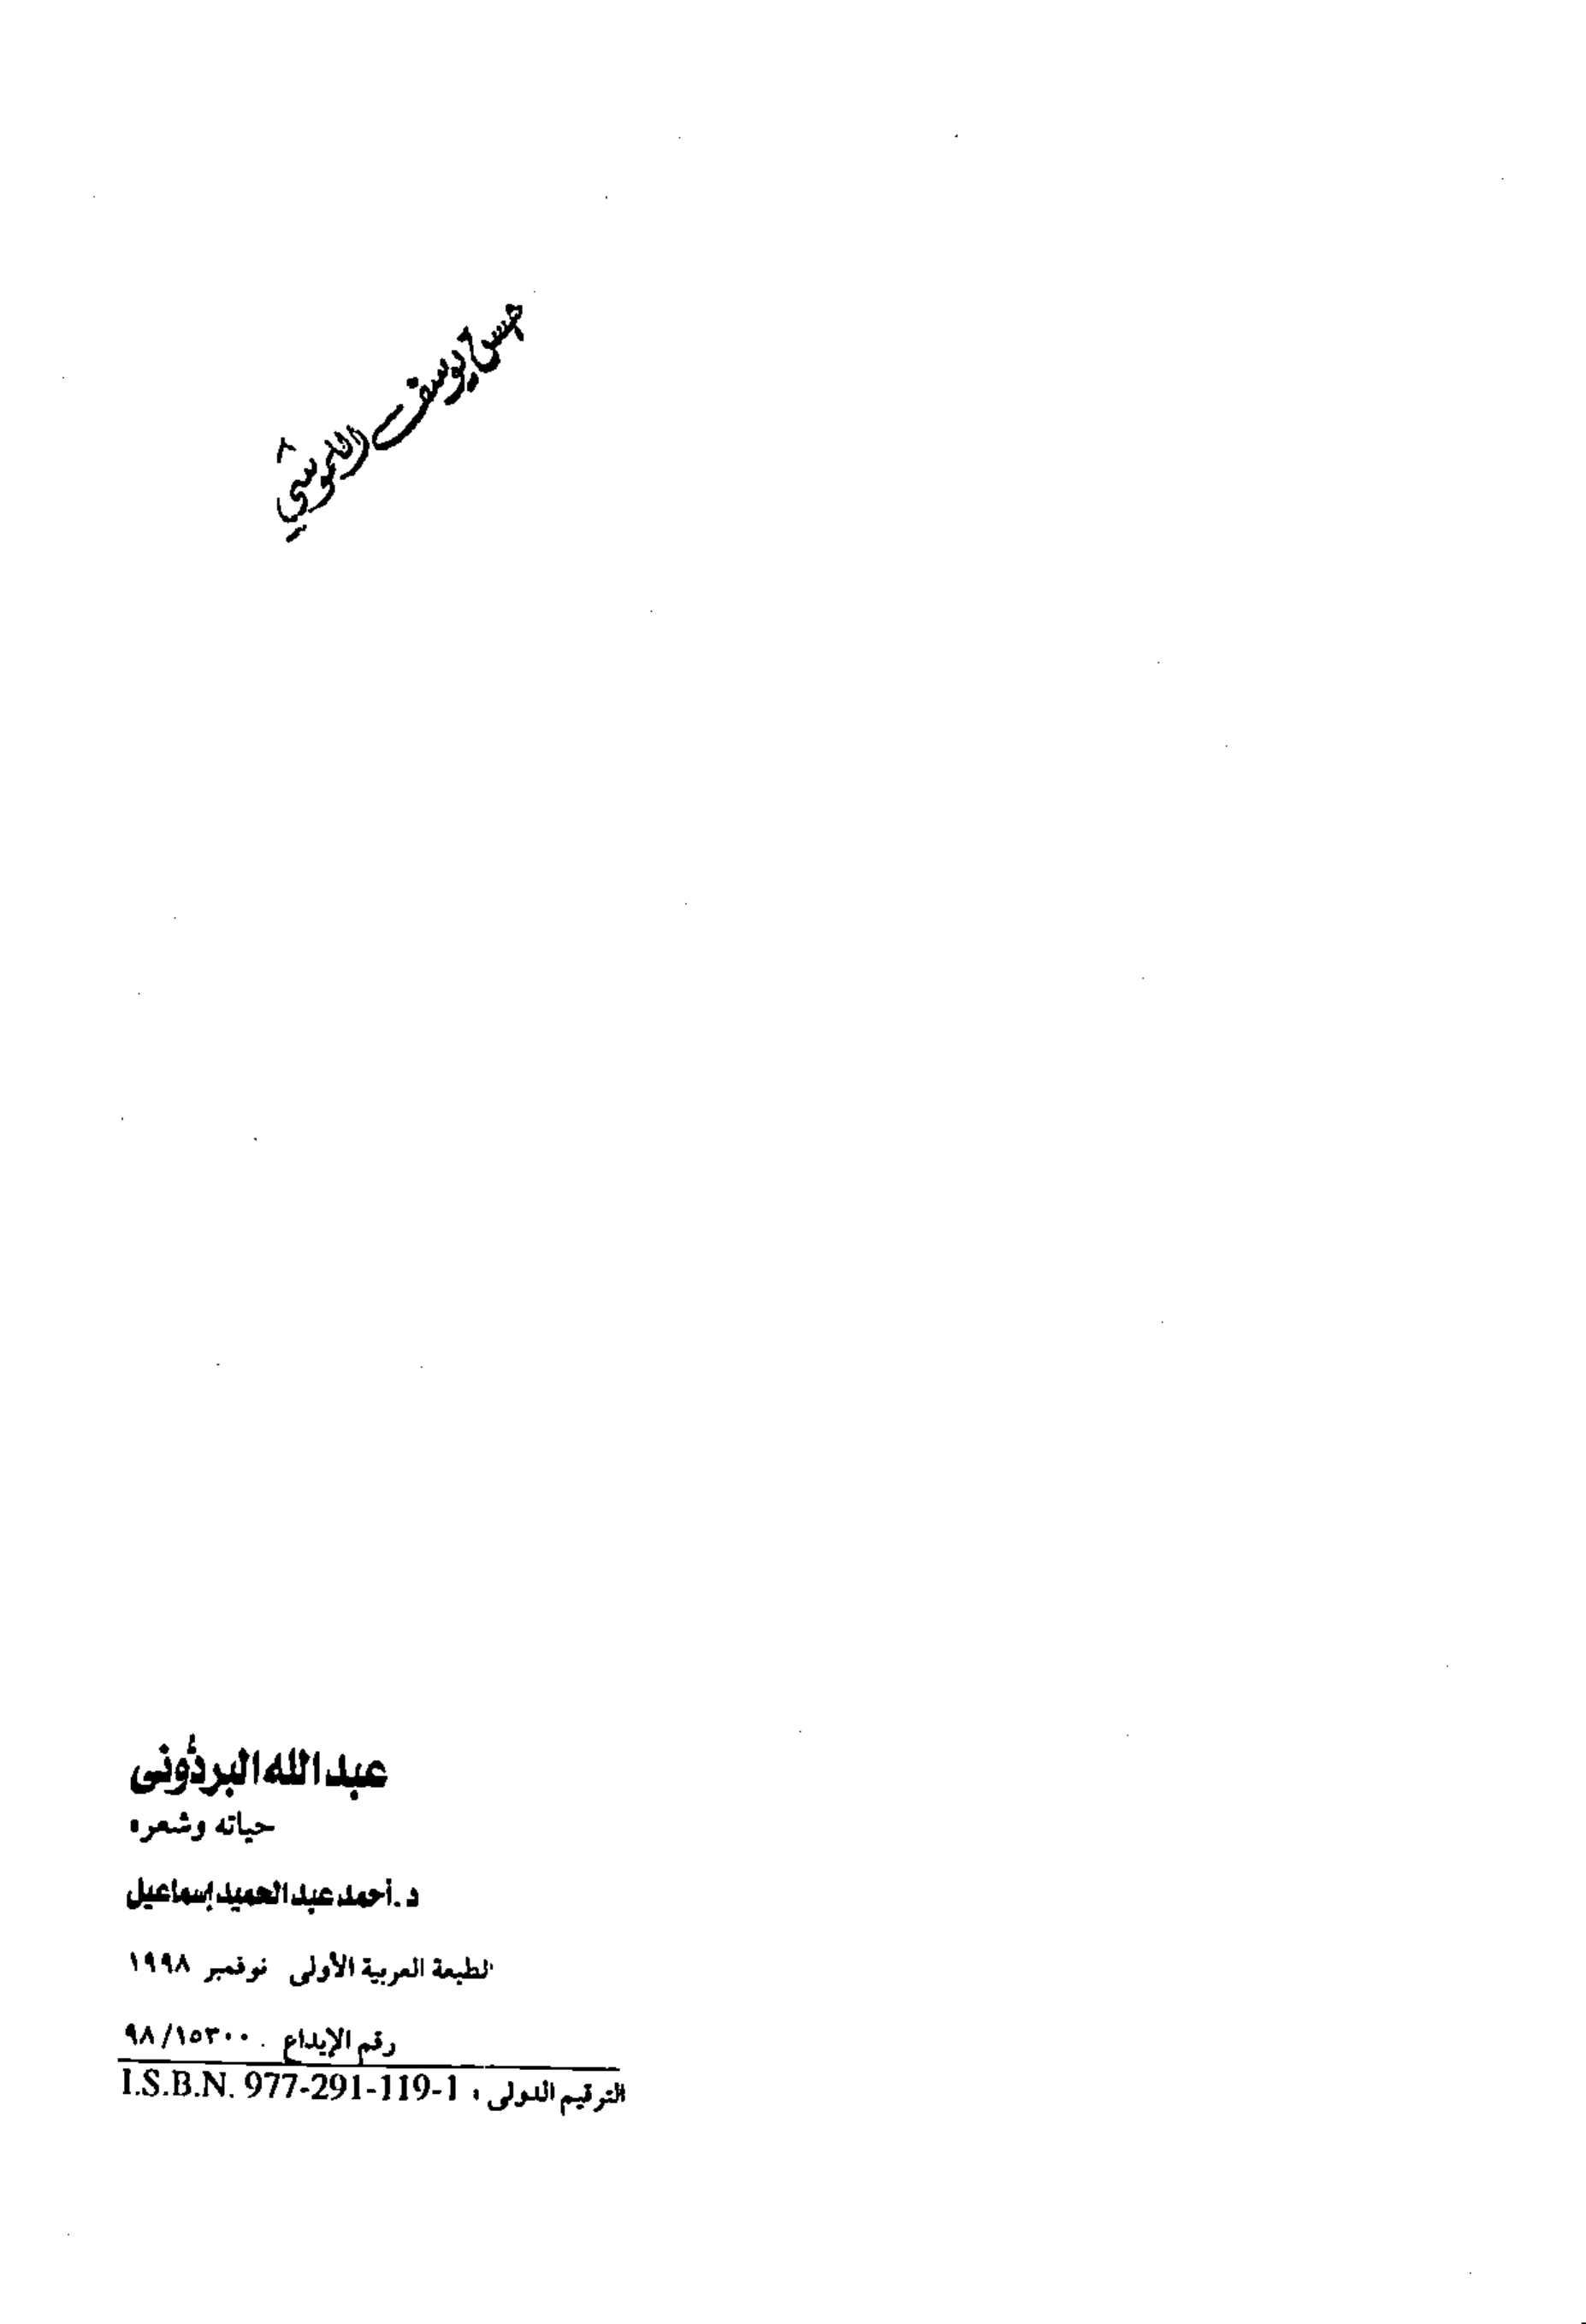 عبدالله البردُّونى
حياته وشعره
د. أحمد عبدالحميد إسماعيل
الطبعة العربية الأولى نوفمبر ١٩٩٨
رقم الإيداع . ٩٨/١٥٣٠٠
الترقيم الدولى : I.S.B.N. 977-291-119-1